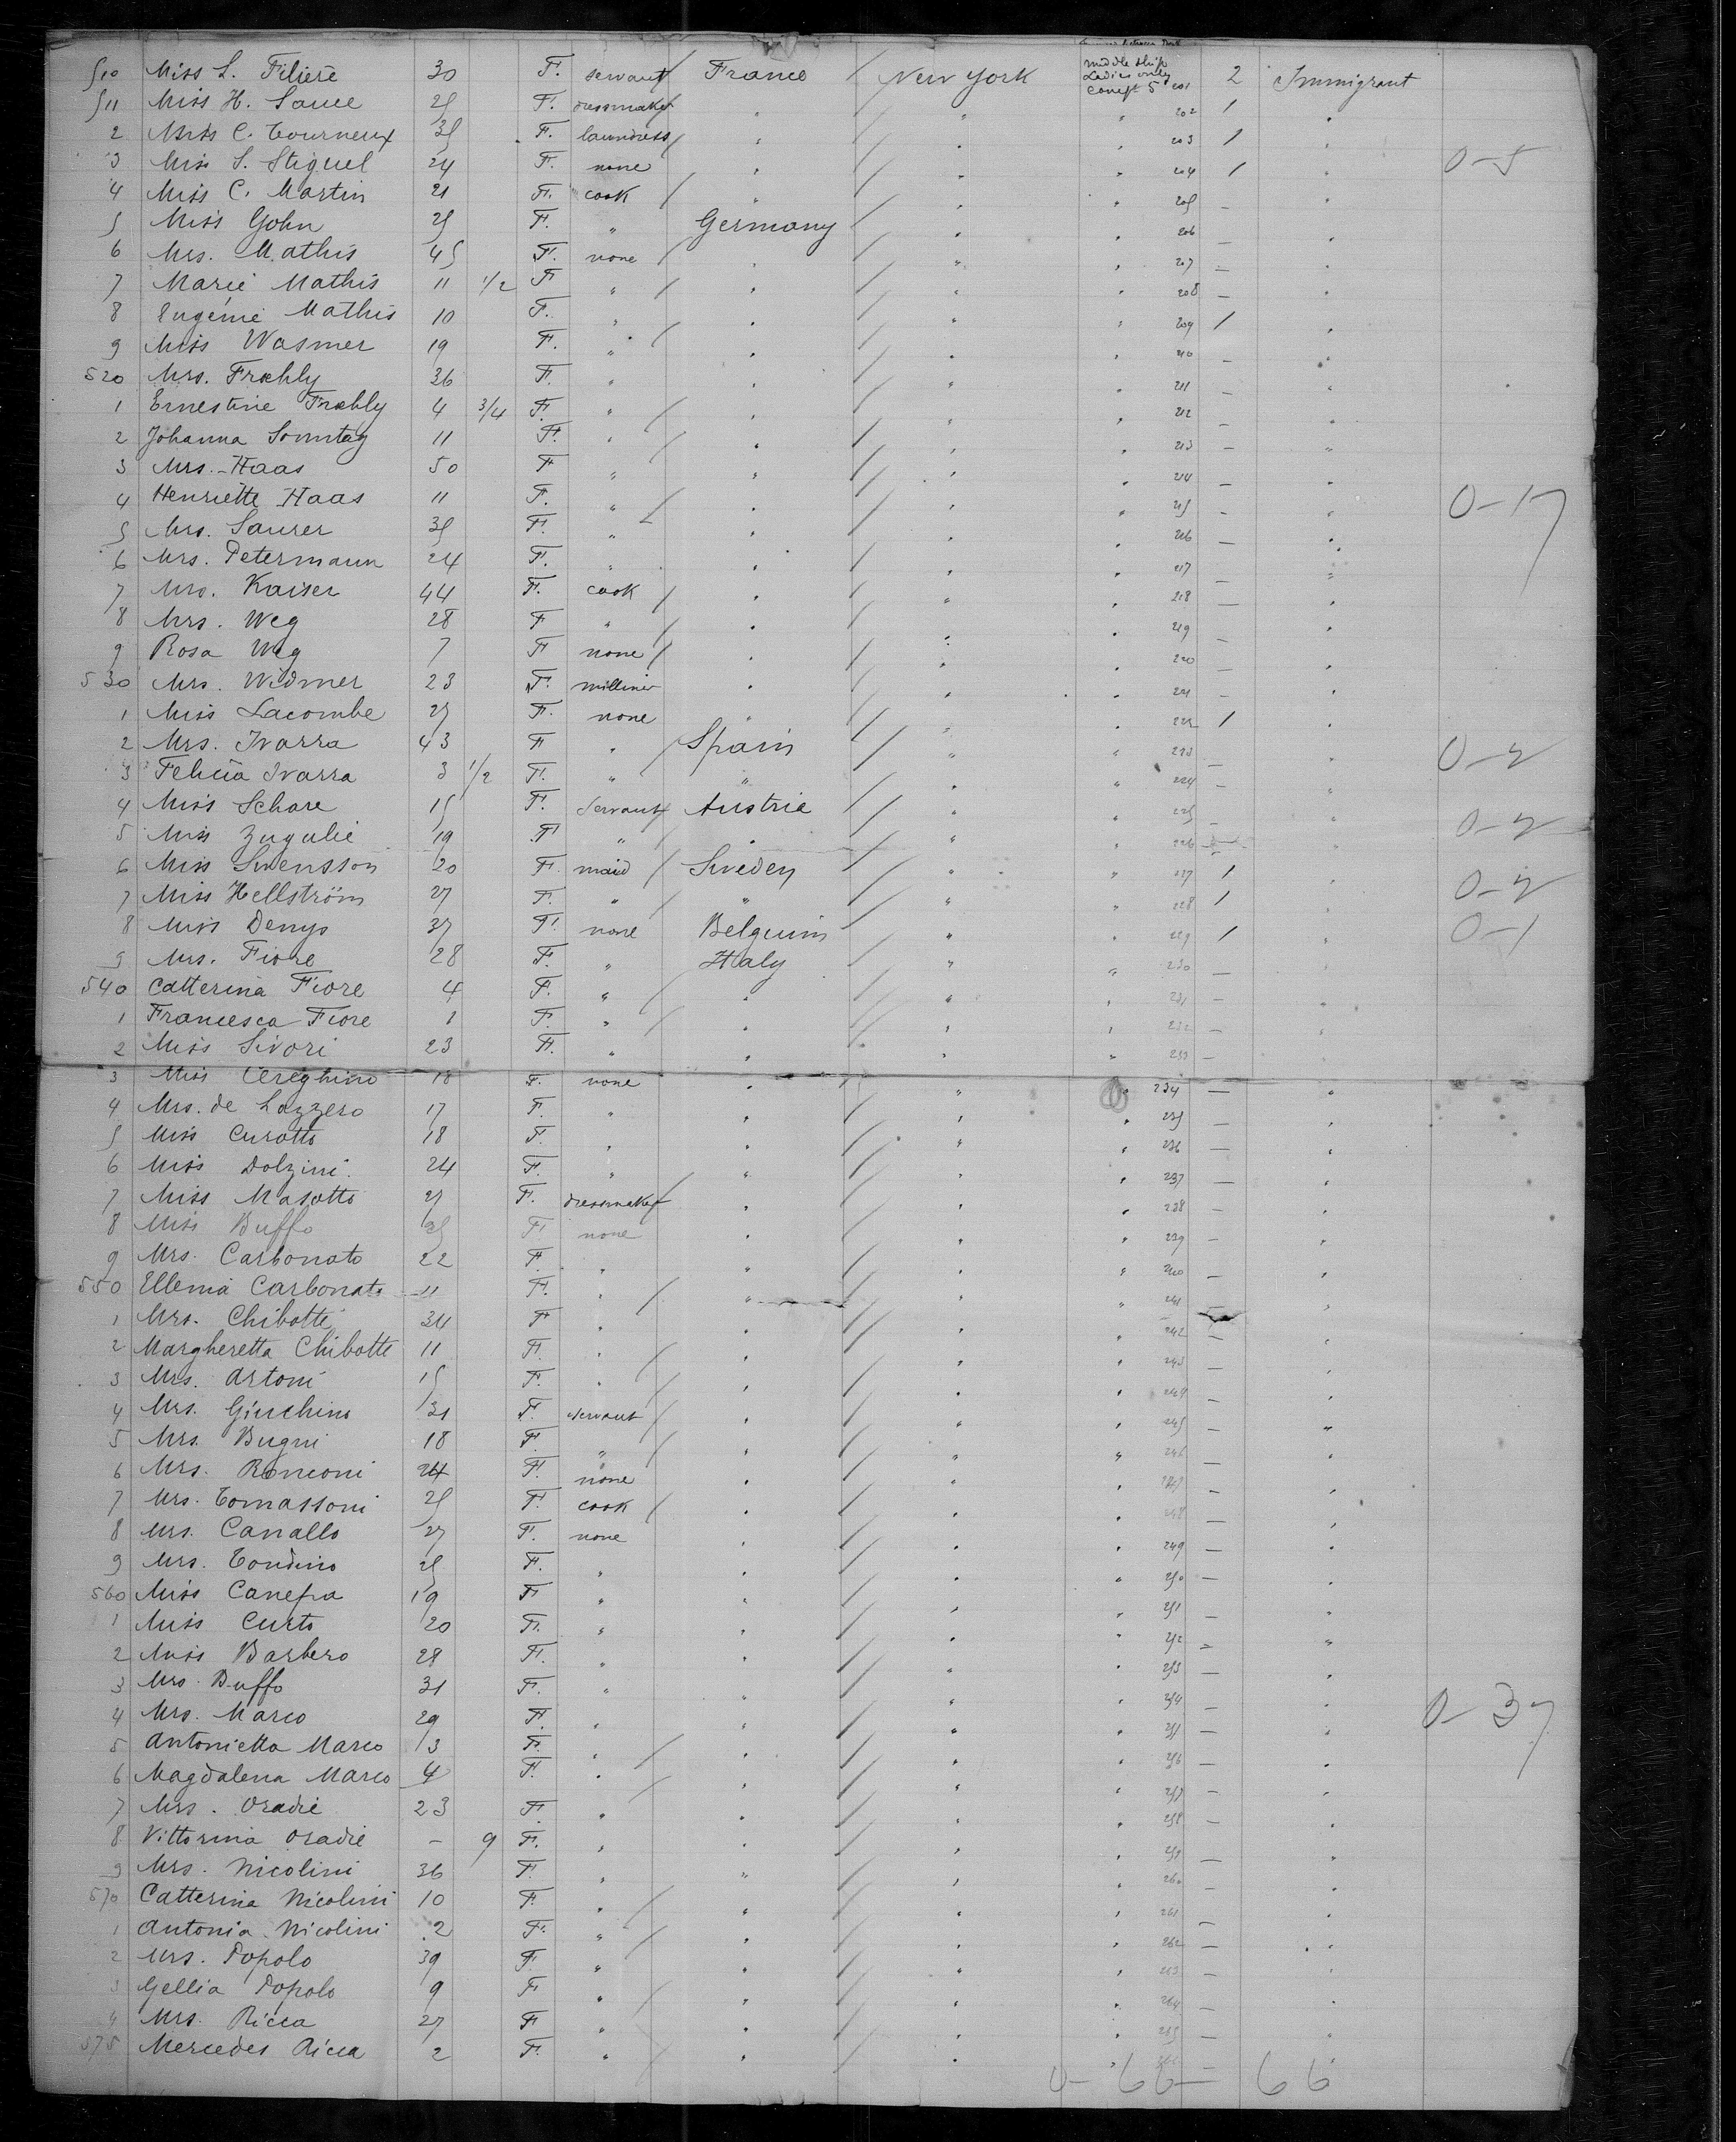 middle ship
510 Miss L. Filiere 30 F. servant / France / New York Ladies only compt 5 201 2 Immigrant
511 Miss H. 25 F. dressmaker " / " " 202 1 "
2 Miss C. Tourneux 35 F. laundress / " / " " 203 1 "
3 Miss S. Stiguel 24 F. none " / " " 204 1 " 0-5
4 Miss C. Martin 21 F. cook / " / " " 205 — "
5 Miss Gohn 25 F. " Germany / " " 206 — "
6 Mrs. Mathis 45 F. none " / " " 207 — "
7 Marie Mathis 11 1/2 F " / " / " " 208 — "
8 Eugénie Mathis 10 F. " / " / " " 209 1 "
9 Miss Wasmer 19 F. " " / " " 210 — "
520 Mrs. Fræhly 36 F. " " / " " 211 "
1 Ernestine Fræhly 4 3/4 F. " / " / " " 212 — "
2 Johanna Sonntag 11 F. " / " / " " 213 — "
3 Mrs. Haas 50 F " " / " " 214 — "
4 Henriette Haas 11 F. " / " / " " 215 — " 0-17
5 Mrs. Saurer 35 F. " " / " " 216 — "
6 Mrs. Petermann 24 F. " " / " " 217 — "
7 Mrs. Kaiser 44 F. cook / " / " " 218 — "
8 Mrs. Weg 28 F " / " / " " 219 — "
9 Rosa Weg 7 F none / " / " " 220 — "
530 Mrs. Widmer 23 F. milliner " / " " 221 — "
1 Miss Lacombe 25 F. none " / " " 222 1 "
2 Mrs. Ivarra 43 F " / Spain / " " 223 — " 0-2
3 Felicia Ivarra 3 1/2 F. " " / " " 224 — "
4 Miss Schare 15 F. Servant / Austria / " " 225 — " 0-2
5 Miss Zugulie 19 F " " / " " 226 — "
6 Miss Swensson 20 F. maid / Sweden / " " 227 1 " 0-2
7 Miss Hellström 27 F. " / " / " " 228 1 "
8 Miss Denys 37 F. none Belguim / " " 229 1 " 0-1
9 Mrs. Fiore 28 F. " Italy / " " 230 — "
540 Catterina Fiore 4 F. " / " / " " 231 — "
1 Francesca Fiore 1 F. " / " / " " 232 — "
2 Miss Sivori 23 F. " " / " " 233 — "
3 Miss Cereghino 18 F. none " / " " 234 — "
4 Mrs. de Lazzero 17 F. " " / " " 235 — "
5 Miss Curotto 18 F. " " / " " 236 — "
6 Miss Dolzini 24 F. " " / " " 237 — "
7 Miss Masotto 25 F. dressmaker " / " " 238 — "
8 Miss Buffo 25 F. none " / " " 239 — "
9 Mrs. Carbonato 22 F. " " / " " 240 — "
550 Ellenia Carbonato 11 F. " / " / " " 241 — "
1 Mrs. Chibotti 34 F " " / " " 242 — "
2 Margheretta Chibotte 11 F. " / " / " " 243 — "
3 Mrs. Artoni 15 F. " / " / " " 244 — "
4 Mrs. Giuchino 31 F. servant / " / " " 245 — "
5 Mrs. Bugni 18 F. " / " / " " 246 — "
6 Mrs. Ronconi 24 F. none " / " " 247 — "
7 Mrs. Tomassoni 25 F. cook / " / " " 248 "
8 Mrs. Canallo 27 F. none " / " " 249 — "
9 Mrs. Tondino 25 F. " " / " " 250 — "
560 Miss Canepa 19 F " " / " " 251 — "
1 Miss Curto 20 F. " " / " " 252 — "
2 Miss Barbero 28 F. " " / " " 253 — "
3 Mrs. Buffo 31 F. " " / " " 254 — "
4 Mrs. Marco 29 F. " " / " " 255 — " 0-37
5 Antonietta Marco 13 F. " / " / " " 256 — "
6 Magdalena Marco 4 F. " / " / " " 257 — "
7 Mrs. Oradie 23 F. " " / " " 258 — "
8 Vittorina Oradie — 9 F. " " / " " 259 — "
9 Mrs. Nicolini 36 F. " " / " " 260 — "
570 Catterina Nicolini 10 F. " / " / " " 261 — "
1 Antonia Nicolini 2 F. " / " / " " 262 — "
2 Mrs. Popolo 39 F. " " / " " 263 — "
3 Gellia Popolo 9 F " / " / " " 264 — "
4 Mrs. Ricca 27 F " " / " " 265 — "
575 Mercedes Ricca 2 F. " / " / " " — "
0-66- 66